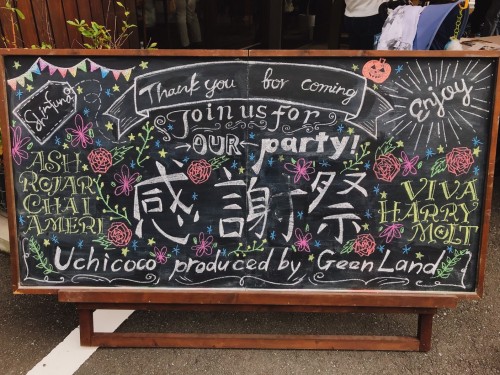 Thank you for coming
Enjoy
Join us for
OUR party!
ASH
ROTARY
CHAI
AMERI
感謝祭
VIVA
HARRY
MOLT
Uchicoco produced by Geen Land